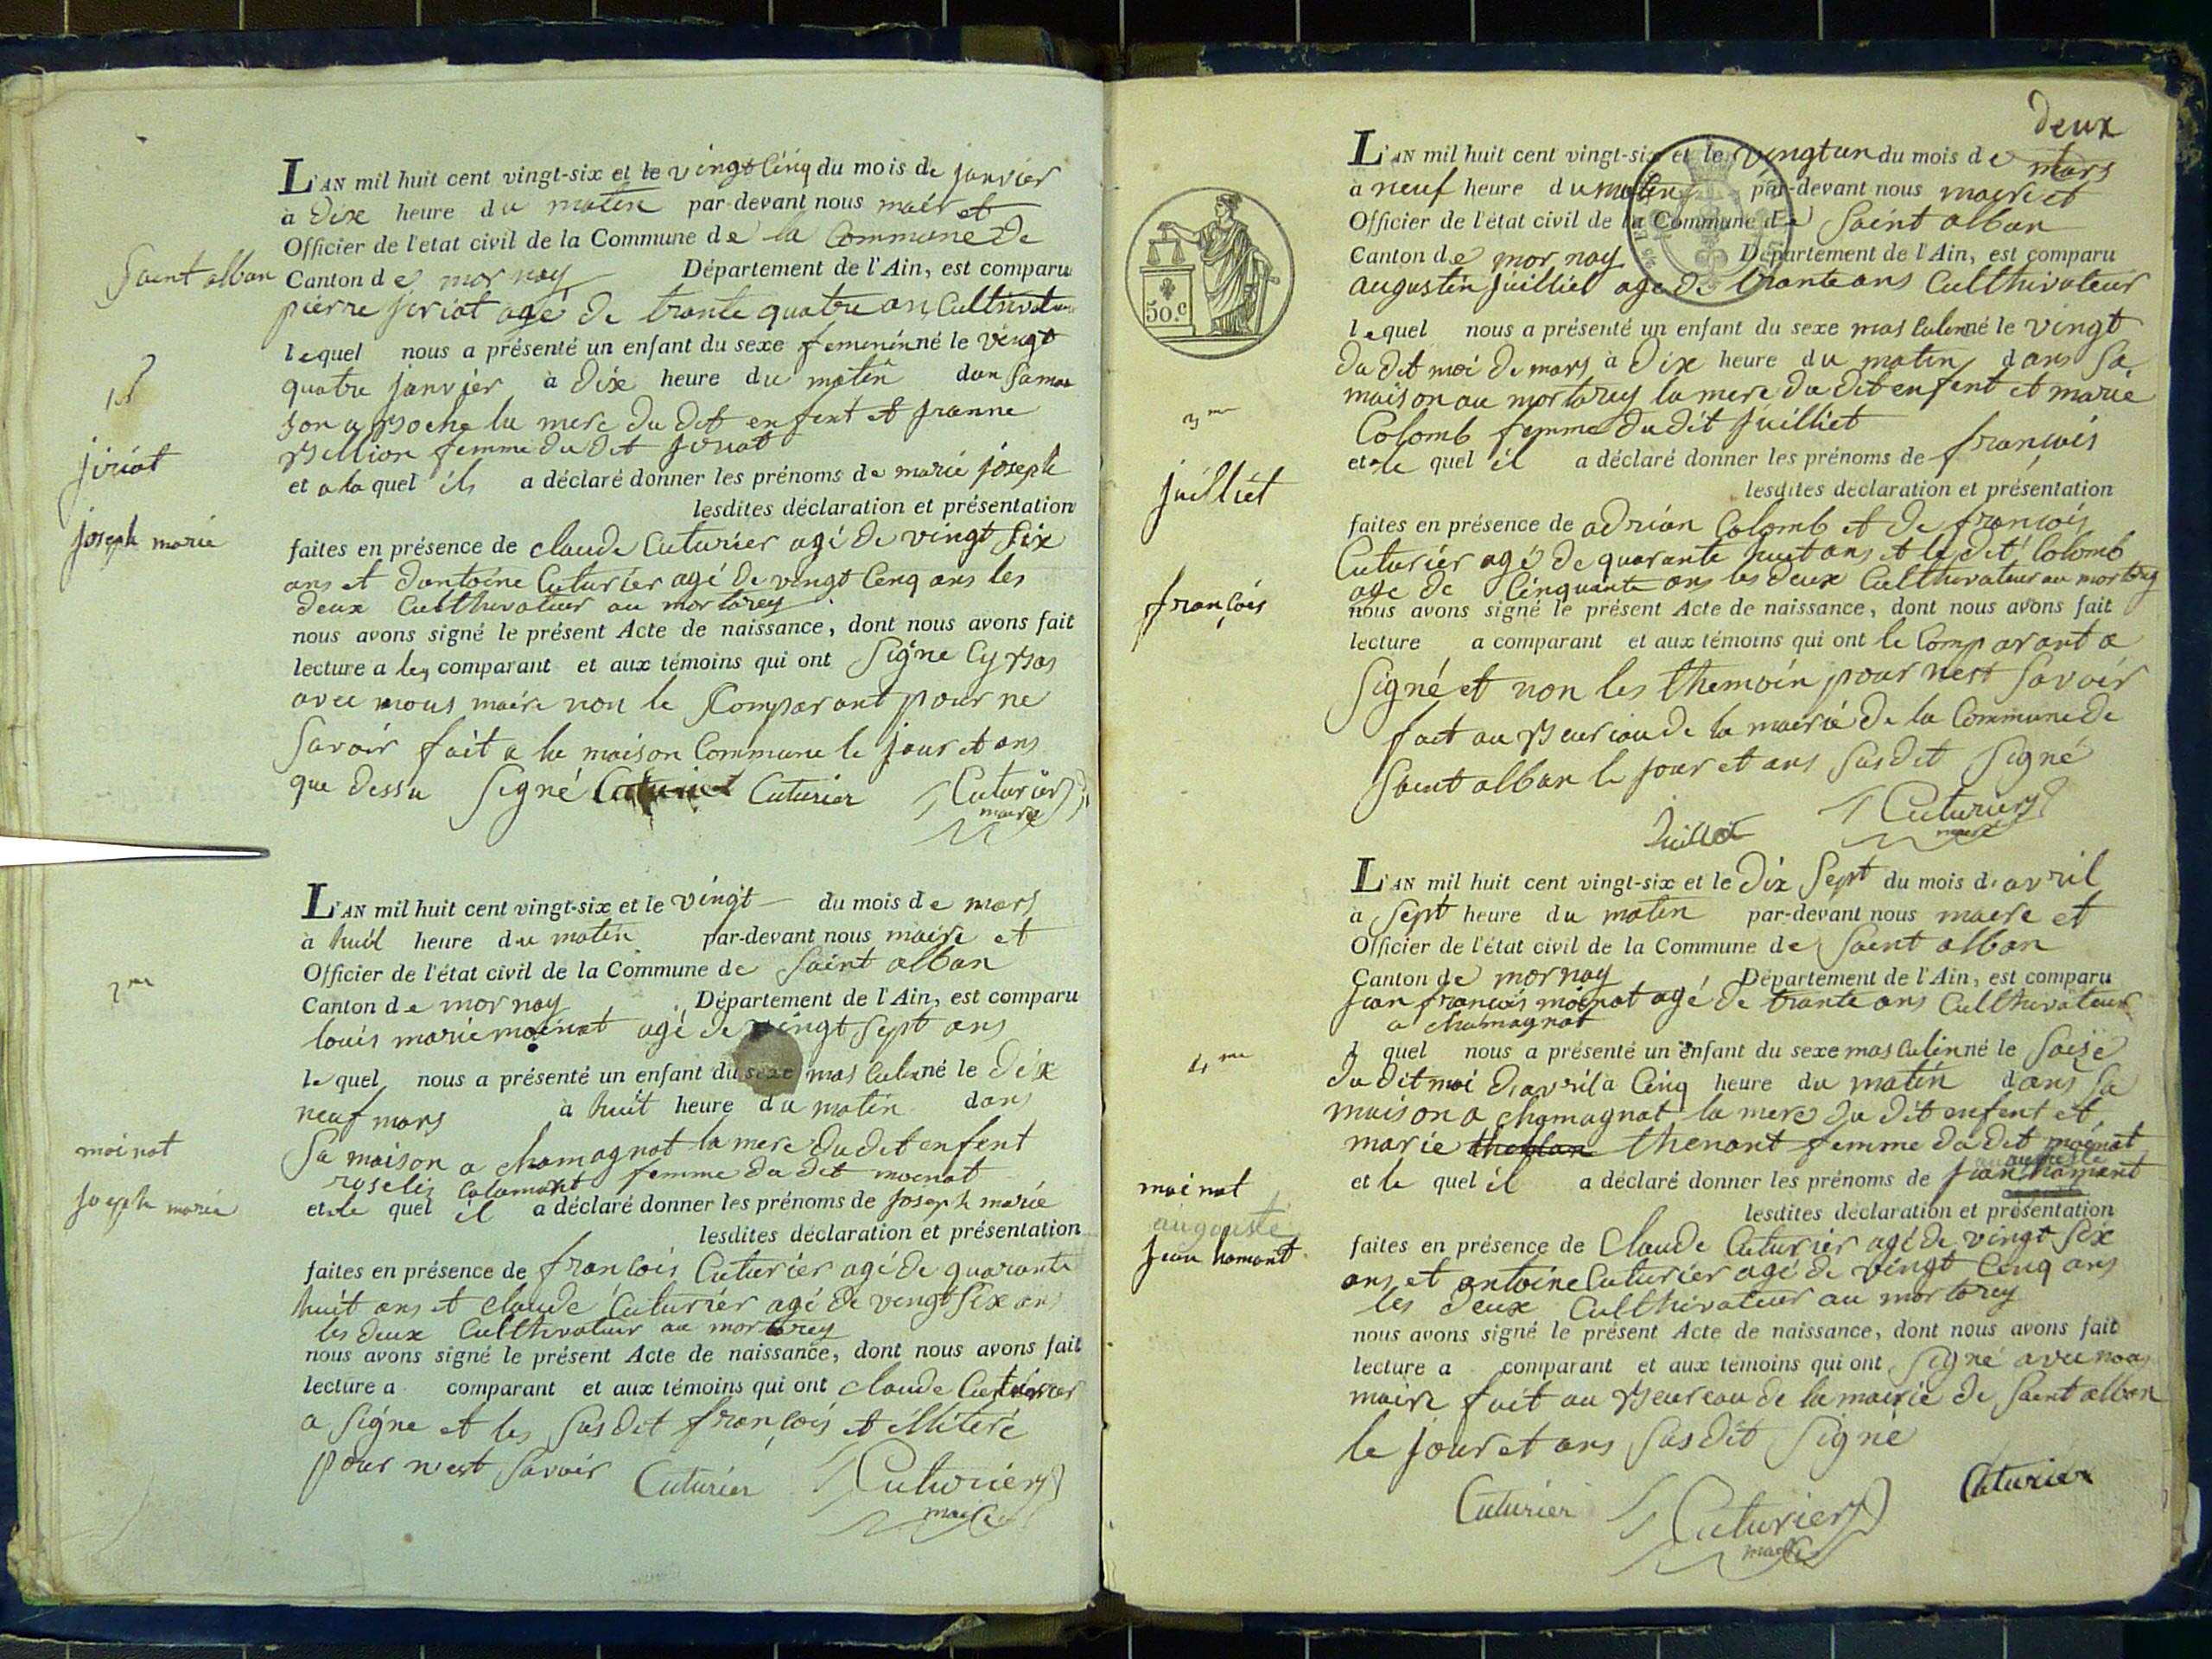 L'AN mil huit cent vingt-six et le vingt Cinq du mois de janvier
à Dix heure du matin par-devant nous mair et
Officier de l'etat civil de la Commune de la Commune de
Saint alban Canton de mornay Département de l'Ain, est comparu
pierre jiriat agé de trante quatre an Culthivateur
lequel nous a présenté un enfant du sexe femeninné le vingt
quatre janvier à Dix heure du matin dan sa mai
son a la mere du dit enfent et
femme du dit jiriat
et a la quel ils a déclaré donner les prénoms de marie joseph
lesdites déclaration et présentation
faites en présence de claude Cuturier agé de vingt six
ans et dantoine Cuturier agé de vingt Cenq ans les
deux Culthivateur au mortarey
nous avons signé le présent Acte de naissance, dont nous avons fait
lecture a les comparant et aux témoins qui ont Signe Cy bas
avec nous maire non le Comparant pour ne
Savoir fait a la maison Commune le jour et ans
que dessu Signé Cuturier Cuturier
maire
1er
jiriat
joseph marie
L'AN mil huit cent vingt-six et le vingt du mois de mars
à huit heure du matin par-devant nous maire et
Officier de l'état civil de la Commune de Saint alban
Canton de mornay Département de l'Ain, est comparu
louis marie moinat agé de vingt sept ans
lequel nous a présenté un enfant du sexe masculinné le Dix
neuf mars à huit heure du matin dans
Sa maison a chamagnat la mere du dit enfent
femme du dit moenat
et le quel il a déclaré donner les prénoms de joseph marie
lesdites déclaration et présentation
faites en présence de francois Cuturier agé de quarante
huit ans et claude Cuturier agé de vengt six an
les deux Culthivateur au mortarey
nous avons signé le présent Acte de naissance, dont nous avons fait
lecture a comparant et aux témoins qui ont claude Cuturier
a Signe et les Susdit francois et illiteré
pour nest Savoir Cuturier Cuturier
maire
2me
moinat
joseph marie
deux
L'AN mil huit cent vingt-six et le vingtun du mois de mars
à neuf heure du matin par-devant nous maire et
Officier de l'état civil de la Commune de Saint alban
Canton de mornay Département de l'Ain, est comparu
augustin juilliet age de trante ans Culthivateur
lequel nous a présenté un enfant du sexe masculinné le vingt
du dit moi de mars à Dix heure du matin dans Sa
maison au mortarey la mere du dit enfent et marie
Colomb femme du dit juilliet
et le quel il a déclaré donner les prénoms de francois
lesdites déclaration et présentation
faites en présence de adrian Colomb et de francois
Cuturier agé de quarante huit ans et le dit Colomb
age de Cinquante ans les deux Culthivateur au mortarey
nous avons signé le présent Acte de naissance, dont nous avons fait
lecture a comparant et aux témoins qui ont le Comparant a
Signé et non les themoin pour nest Savoir
fait au de la mairie de la Commune de
Saint alban le jour et ans Susdit Signé
Cuturier
juillet maire
50.c
3me
juilliet
francois
L'AN mil huit cent vingt-six et le Dix Sept du mois d'avril
à Sept heure du matin par-devant nous maire et
Officier de l'état civil de la Commune de Saint alban
Canton de mornay Département de l'Ain, est comparu
jean francois moinat agé de trante ans Culthivateur
a chamagnat
l quel nous a présenté un enfant du sexe masculinné le Saise
du dit moi d'avril à Cinq heure du matin dans Sa
maison a chamagnat la mere du dit enfent et
marie thenant femme du dit moenat
et le quel il a déclaré donner les prénoms de jean
lesdites déclaration et présentation
faites en présence de Claude Cuturier agé de vingt Six
ans et antoine Cuturier agé de vingt Cenq ans
les deux Culthivateur au mortarey
nous avons signé le présent Acte de naissance, dont nous avons fait
lecture a comparant et aux témoins qui ont Signé avec nous
maire fait au de la mairie de Saint alban
le jour et ans Susdit Signé
Cuturier Cuturier Cuturier
maire
4me
moinat
augouste
jean hamant